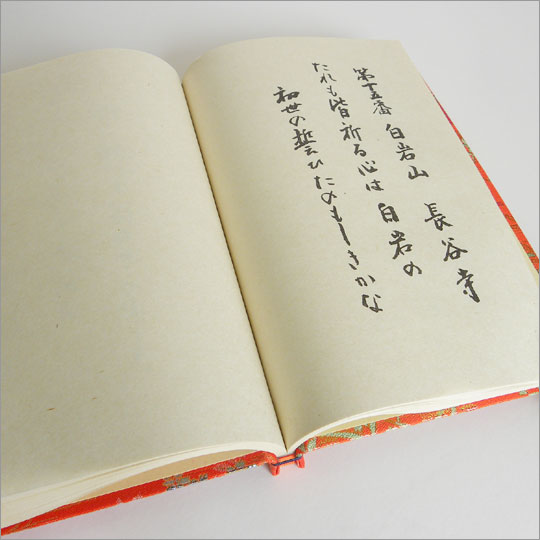 第十五番 白岩山 長谷寺
たれも皆祈る心は白岩の
初世の誓ひたのもしきかな